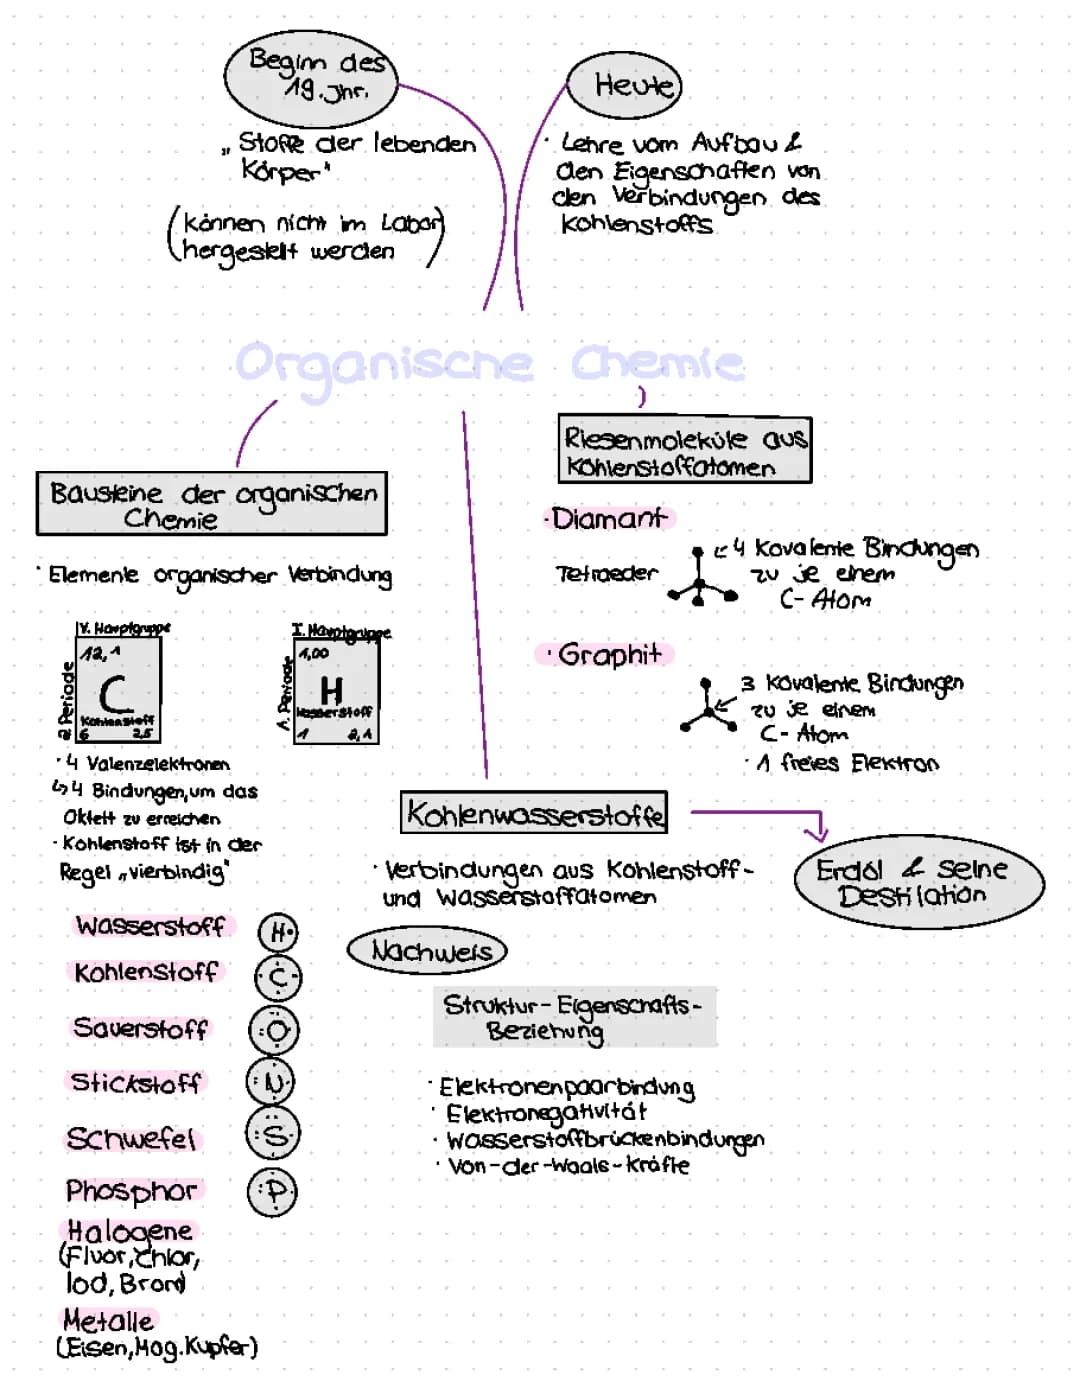 Beginn des
19. Jhr.
„Stoffe der lebenden
Körper"
(können nicht im Labor
hergestellt werden)
Heute
· Lehre vom Aufbau &
den Eigenschaften von
den Verbindungen des
Kohlenstoffs
Organische Chemie
Bausteine der organischen
Chemie
· Elemente organischer Verbindung
IV. Hauptgruppe
2. Periode
12,1
C
Kohlenstoff
6 2,5
I. Hauptgruppe
1. Periode
1,00
H
Wasserstoff
1 2,1
· 4 Valenzelektronen
↳ 4 Bindungen, um das
Oktett zu erreichen
· Kohlenstoff ist in der
Regel „vierbindig"
Wasserstoff H·
Kohlenstoff C
Sauerstoff O
Stickstoff N
Schwefel S
Phosphor P
Halogene
(Fluor, Chlor,
Iod, Brom)
Metalle
(Eisen, Mag. Kupfer)
Riesenmoleküle aus
Kohlenstoffatomen
· Diamant
Tetraeder
4 Kovalente Bindungen
zu je einem
C-Atom
· Graphit
3 Kovalente Bindungen
zu je einem
C-Atom
· 1 freies Elektron
Kohlenwasserstoffe
· Verbindungen aus Kohlenstoff-
und Wasserstoffatomen
Erdöl & seine
Destilation
Nachweis
Struktur-Eigenschafts-
Beziehung
· Elektronenpaarbindung
· Elektronegativität
· Wasserstoffbrückenbindungen
· Von-der-Waals-Kräfte